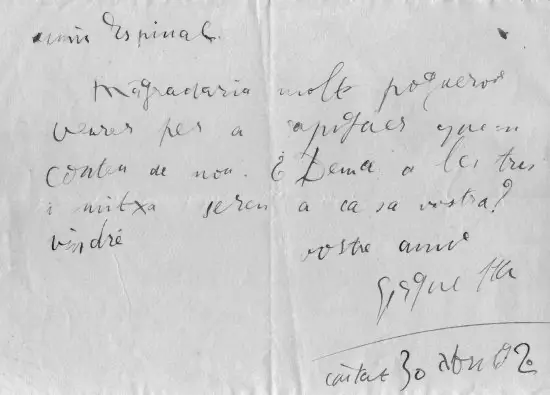 amic Espinal.
M'agradaria molt poguervos
veures per a apigues quem
conteu de nou. ¿Demà a les tres
i mitxa sereu a casa vostra?
vindré vostre amic
30 abril 02